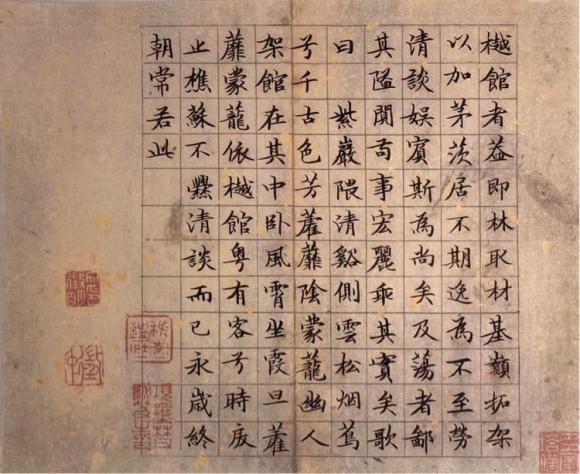 樾館者益即林取材基顛拓架
以加茅茨居不期逸為不至勞
清談娛賓斯為尚矣及蕩者鄙
其隘閴苟事宏麗乖其實矣歌
曰 紫巖隈清谿側雲松烟蔦
兮千古色芳藿蘼陰蒙蘢幽人
架館在其中卧風霄坐霞旦藿
蘼蒙蘢依樾館粤有客兮時戾
止樵蘇不爨清談而已永歲終
朝常若此